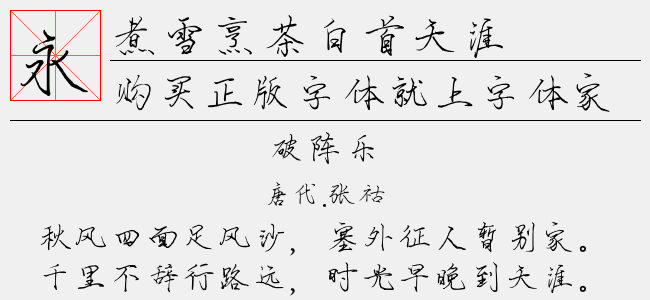 永
煮雪烹茶白首天涯
购买正版字体就上字体家
破阵乐
唐代.张祜
秋风四面足风沙，塞外征人暂别家。
千里不辞行路远，时光早晚到天涯。